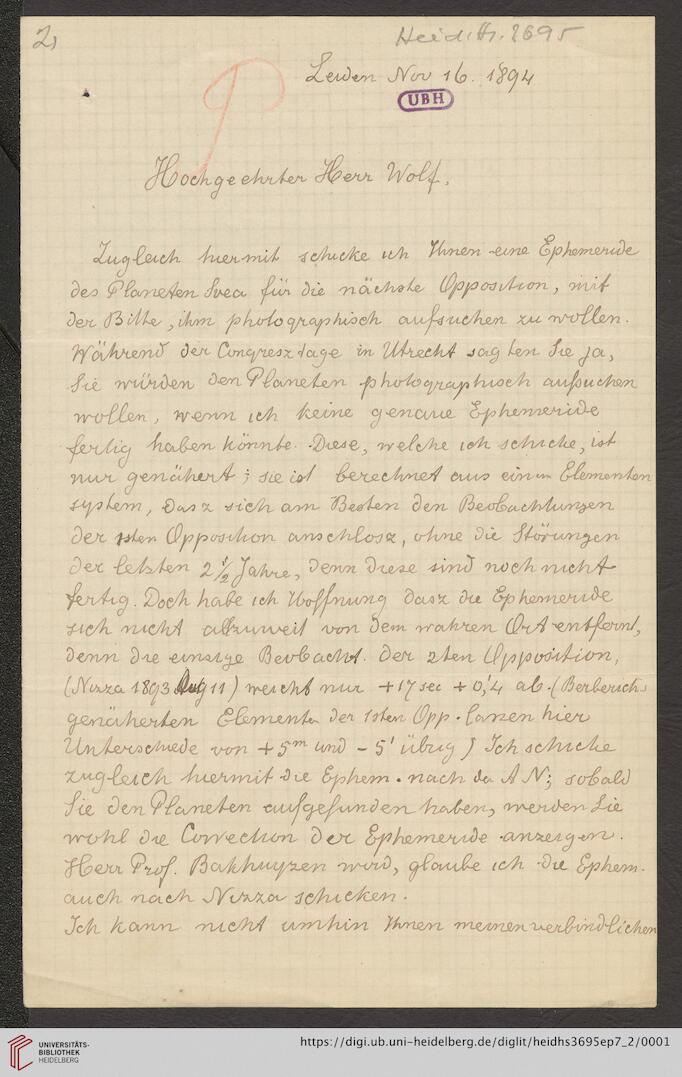 2,
Heid. Hs. 3695
Leiden Nov 16. 1894
UBH
Hochgeehrter Herr Wolf,
Zugleich hiermit schicke ich Ihnen eine Ephemeride
des Planeten Svea für die nächste Opposition, mit
der Bitte, ihm photographisch aufsuchen zu wollen.
Während der Congresztage in Utrecht sagten Sie ja,
Sie würden den Planeten photographisch aufsuchen
wollen, wenn ich keine genaue Ephemeride
fertig haben könnte. Diese, welche ich schicke, ist
nur genähert; sie ist berechnet aus einem Elementen
system, dasz sich am Besten den Beobachtungen
der 1sten Opposition anschlosz, ohne die Störungen
der letzten 2 1/2 Jahre, denn diese sind noch nicht
fertig. Doch habe ich Hoffnung dasz die Ephemeride
sich nicht allzuweit von dem wahren Ort entfernt,
denn die einzige Beobacht. der 2ten Opposition,
(Nizza 1893 Aug 11) weicht nur +17 sec +0,'4 ab. (Berberichs
genäherten Elementen der 1sten Opp. lassen hier
Unterschiede von +5m und -5' übrig) Ich schicke
zugleich hiermit die Ephem. nach da A N; sobald
Sie den Planeten aufgefunden haben, werden Sie
wohl die Correction der Ephemeride anzeigen.
Herr Prof. Bakhuyzen wird, glaube ich die Ephem.
auch nach Nizza schicken.
Ich kann nicht umhin Ihnen meinen verbindlichen
UNIVERSITÄTS-
BIBLIOTHEK
HEIDELBERG
https://digi.ub.uni-heidelberg.de/diglit/heidhs3695ep7_2/0001